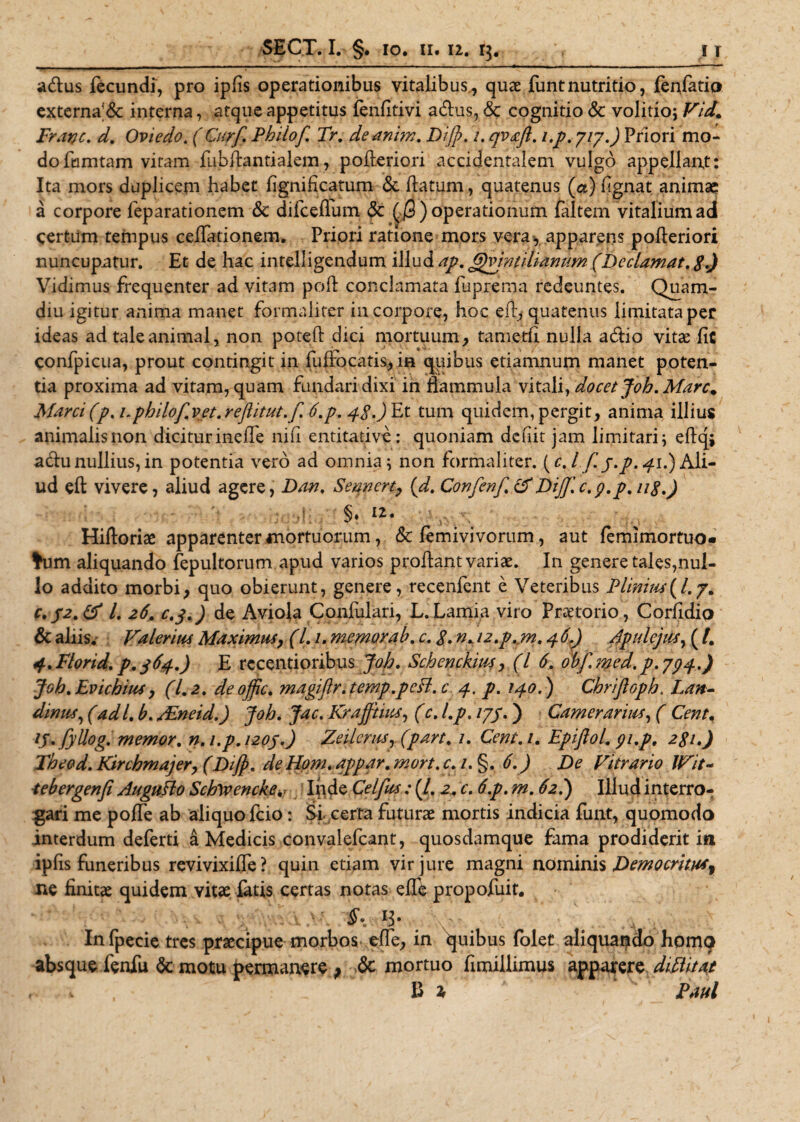 SECT. I. §. 10. 11. 12. 13. 11
actus ſecundi, pro ipſis operationibus vitalibus, quæ ſunt nutritio, ſenſatio
externa & interna, atque appetitus ſenſitivi actus, & cognitio & volitio; Vid.
Franc. d. Oviedo. (Curſ. Philoſ. Tr. de anim. Diſp. 1. qvæſt. 1. p. 717.) Priori mo-
do ſumtam vitam ſubſtantialem, poſteriori accidentalem vulgò appellant:
Ita mors duplicem habet ſignificatum & ſtatum, quatenus (α) ſignat animæ
à corpore ſeparationem & diſceſſum & (β) operationum ſaltem vitalium ad
certum tempus ceſſationem. Priori ratione mors vera, apparens poſteriori
nuncupatur. Et de hac intelligendum illud ap. Qvintilianum (Declamat. 8.)
Vidimus frequenter ad vitam poſt conclamata ſuprema redeuntes. Quam-
diu igitur anima manet formaliter in corpore, hoc eſt, quatenus limitata per
ideas ad tale animal, non poteſt dici mortuum, tametſi nulla actio vitæ ſit
conſpicua, prout contingit in ſuffocatis, in quibus etiamnum manet poten-
tia proxima ad vitam, quam fundari dixi in flammula vitali, docet Joh. Marc.
Marci (p. 1. philoſ. vet. reſtitut. ſ. 6. p. 48.) Et tum quidem, pergit, anima illius
animalis non dicitur ineſſe niſi entitativè: quoniam deſiit jam limitari; eſtq;
actu nullius, in potentia verò ad omnia; non formaliter. (c. l ſ. 5. p. 41.) Ali-
ud eſt vivere, aliud agere, Dan. Sennert, (d. Conſenſ. & Diſſ. c. 9. p. 118.)
§. 12.
Hiſtoriæ apparenter mortuorum, & ſemivivorum, aut ſemimortuo-
rum aliquando ſepultorum apud varios proſtant variæ. In genere tales, nul-
lo addito morbi, quo obierunt, genere, recenſent è Veteribus Plinius (l. 7.
c. 52. & l. 26. c. 3.) de Aviola Conſulari, L. Lamia viro Prætorio, Corſidio
& aliis. Valerius Maximus, (l. 1. memorab. c. 8. n. 12. p. m. 46.) Apulejus, (l.
4. Florid. p. 364.) E recentioribus Joh. Schenckius, (l 6. obſ. med. p. 794.)
Joh. Evichius, (l. 2. de offic. magiſtr. temp. peſt. c 4. p. 140.) Chriſtoph. Lan-
dinus, (ad l. b. Æneid.) Joh. Jac. Krafftius, (c. l. p. 175.) Camerarius, (Cent.
15. ſyllog. memor. n. 1. p. 1205.) Zeilerus, (part. 1. Cent. 1. Epiſtol. 91. p. 281.)
Theod. Kirchmajer, (Diſp. de Hom. appar. mort. c. 1. §. 6.) De Vitrario Wit-
tebergenſi Auguſto Schwencke. Inde Celſus: (l. 2. c. 6. p. m. 62.) Illud interro-
gari me poſſe ab aliquo ſcio: Si certa futuræ mortis indicia ſunt, quomodo
interdum deſerti à Medicis convaleſcant, quosdamque fama prodiderit in
ipſis funeribus revivixiſſe? quin etiam vir jure magni nominis Democritus,
ne finitæ quidem vitæ ſatis certas notas eſſe propoſuit.
§. 13.
In ſpecie tres præcipue morbos eſſe, in quibus ſolet aliquando homo
absque ſenſu & motu permanere, & mortuo ſimillimus apparere dictitat
B 2 Paul